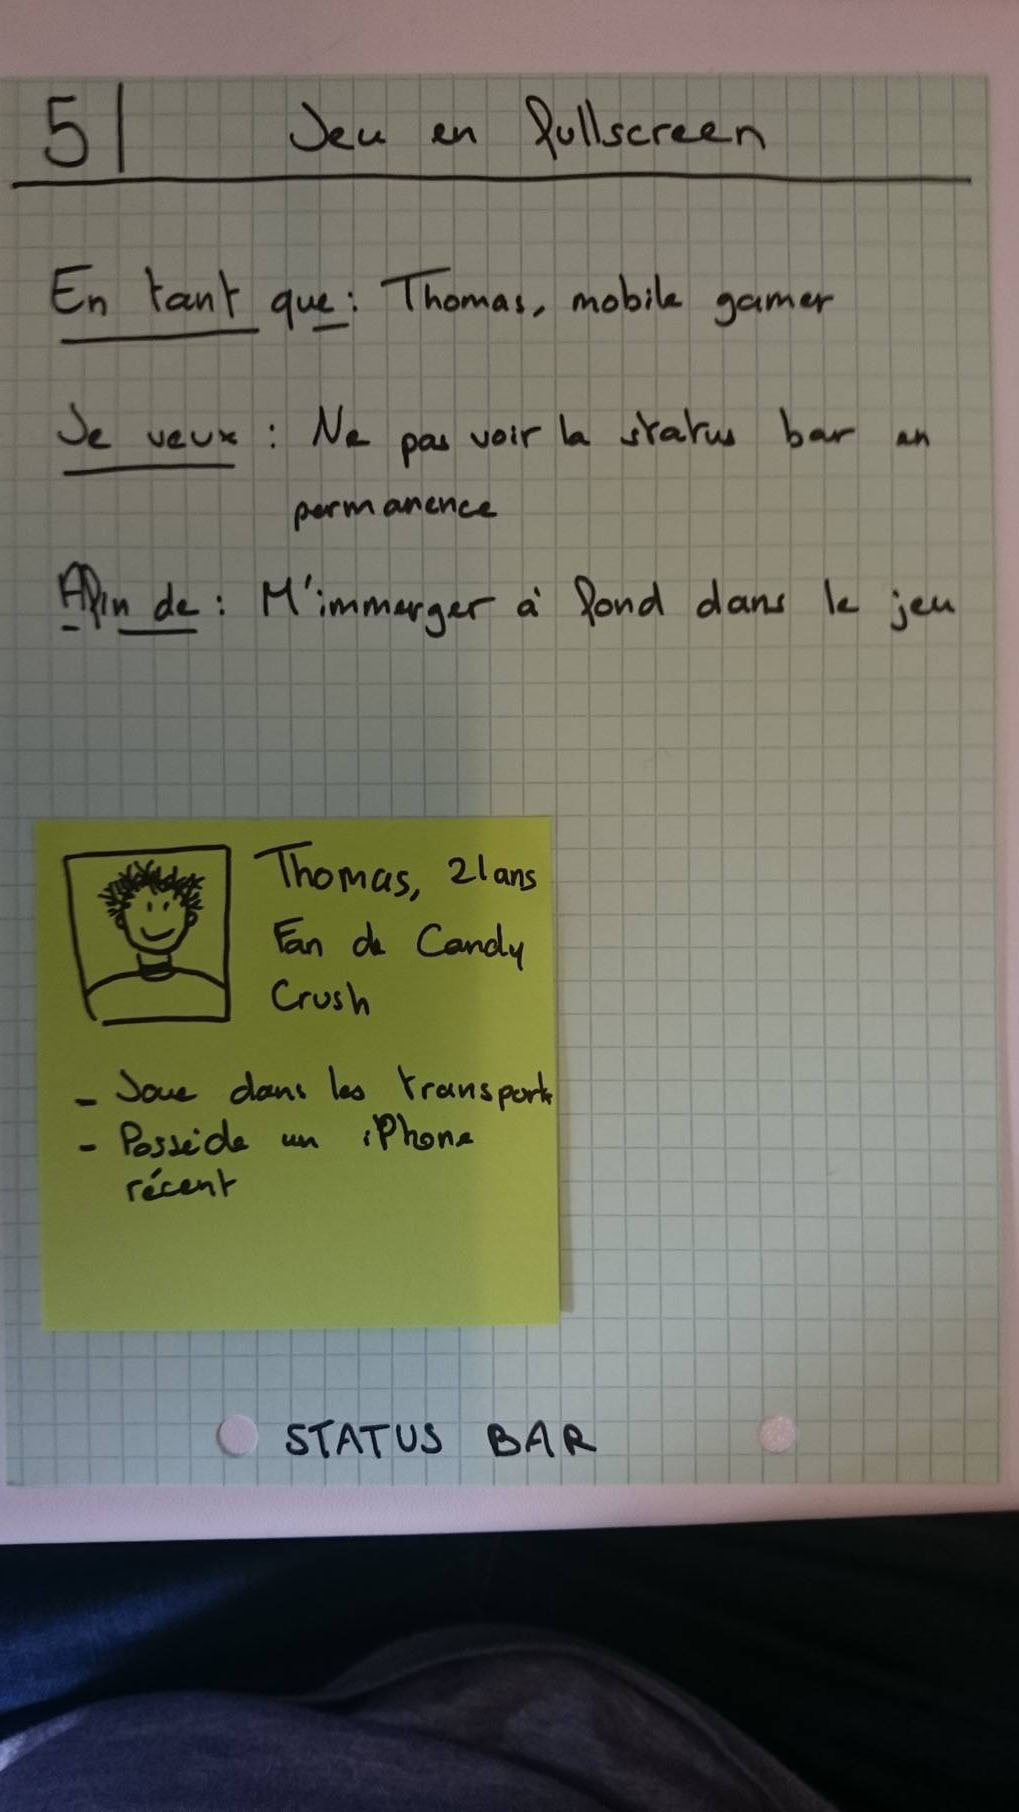 5| Jeu en fullscreen
En tant que : Thomas, mobile gamer
Je veux : Ne pas voir la status bar en
permanence
Afin de : M'immerger à fond dans le jeu
Thomas, 21 ans
Fan de Candy
Crush
- Joue dans les transports
- Possède un iPhone
récent
STATUS BAR